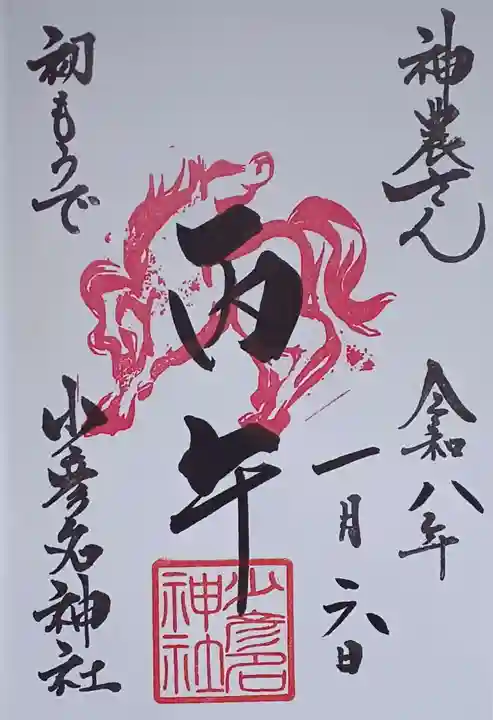 神農さん
令和八年
一月六日
丙午
初もうで
少彦名神社
少彦名
神社